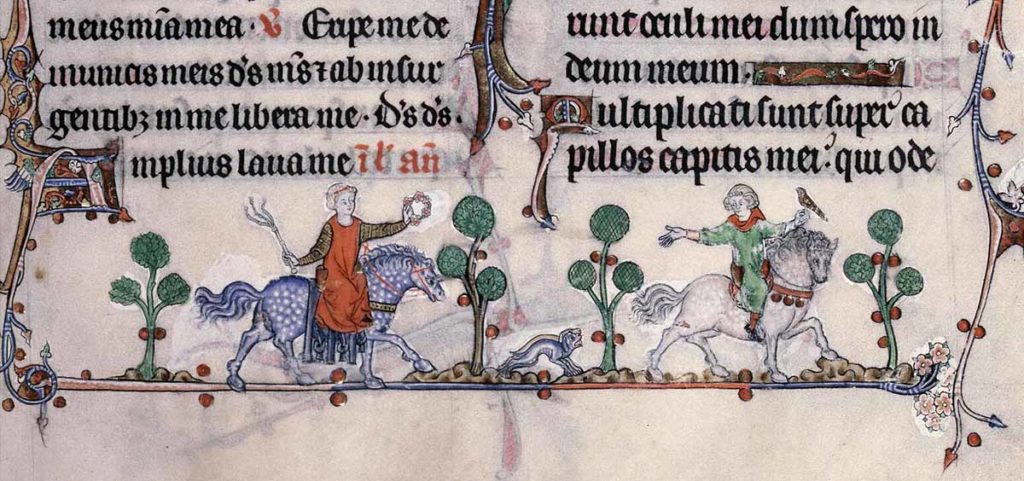 meus mīa mea · ℣ Eripe me de
inimicis meis d̄s m̄s ⁊ ab insur
gentibꝫ in me libera me · D̄s d̄s ·
Amplius laua me
runt oculi mei dum spero in
deum meum ·
Multiplicati sunt super ca
pillos capitis mei: qui ode